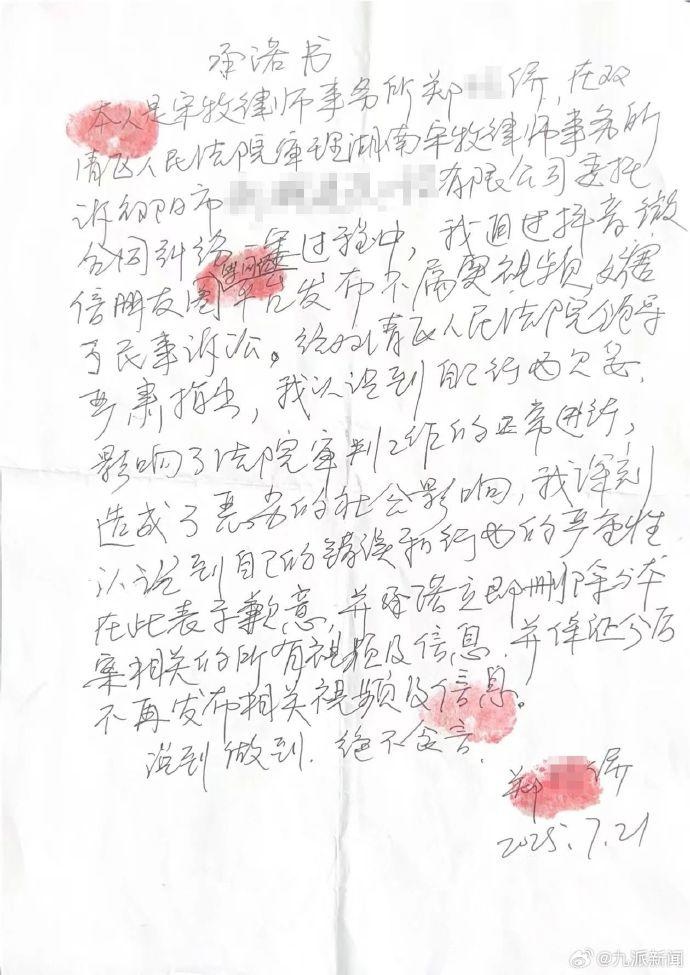 承诺书
本人是宋牧律师事务所郑 侨，在双
清区人民法院审理湖南宋牧律师事务所
诉邵阳市 有限公司委托
合同纠纷一案过程中，我通过抖音、微
信朋友圈 平台发布不属实视频，妨害
了民事诉讼。经双清区人民法院领导
严肃指出，我认识到自己行为欠妥，
影响了法院审判工作的正常进行，
造成了恶劣的社会影响，我深刻
认识到自己的错误和行为的严重性
在此表示歉意，并承诺立即删除与本
案相关的所有视频及信息，并保证今后
不再发布相关视频及信息。
说到做到，绝不食言。
郑 侨
2025.7.21
@九派新闻